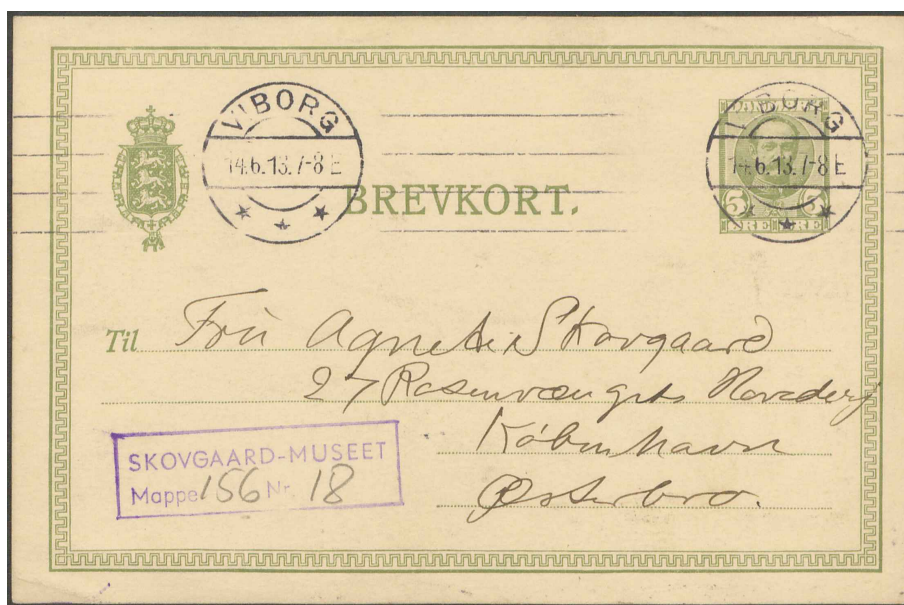 VIBORG
14.6.13.7-8 E
BREVKORT.
VIBORG
14.6.13.7-8 E
5 5
ØRE ØRE
Til Fru Agnete Skovgaard
27 Rosenvængets Hovedvej
København
Østerbro.
SKOVGAARD-MUSEET
Mappe 156 Nr. 18